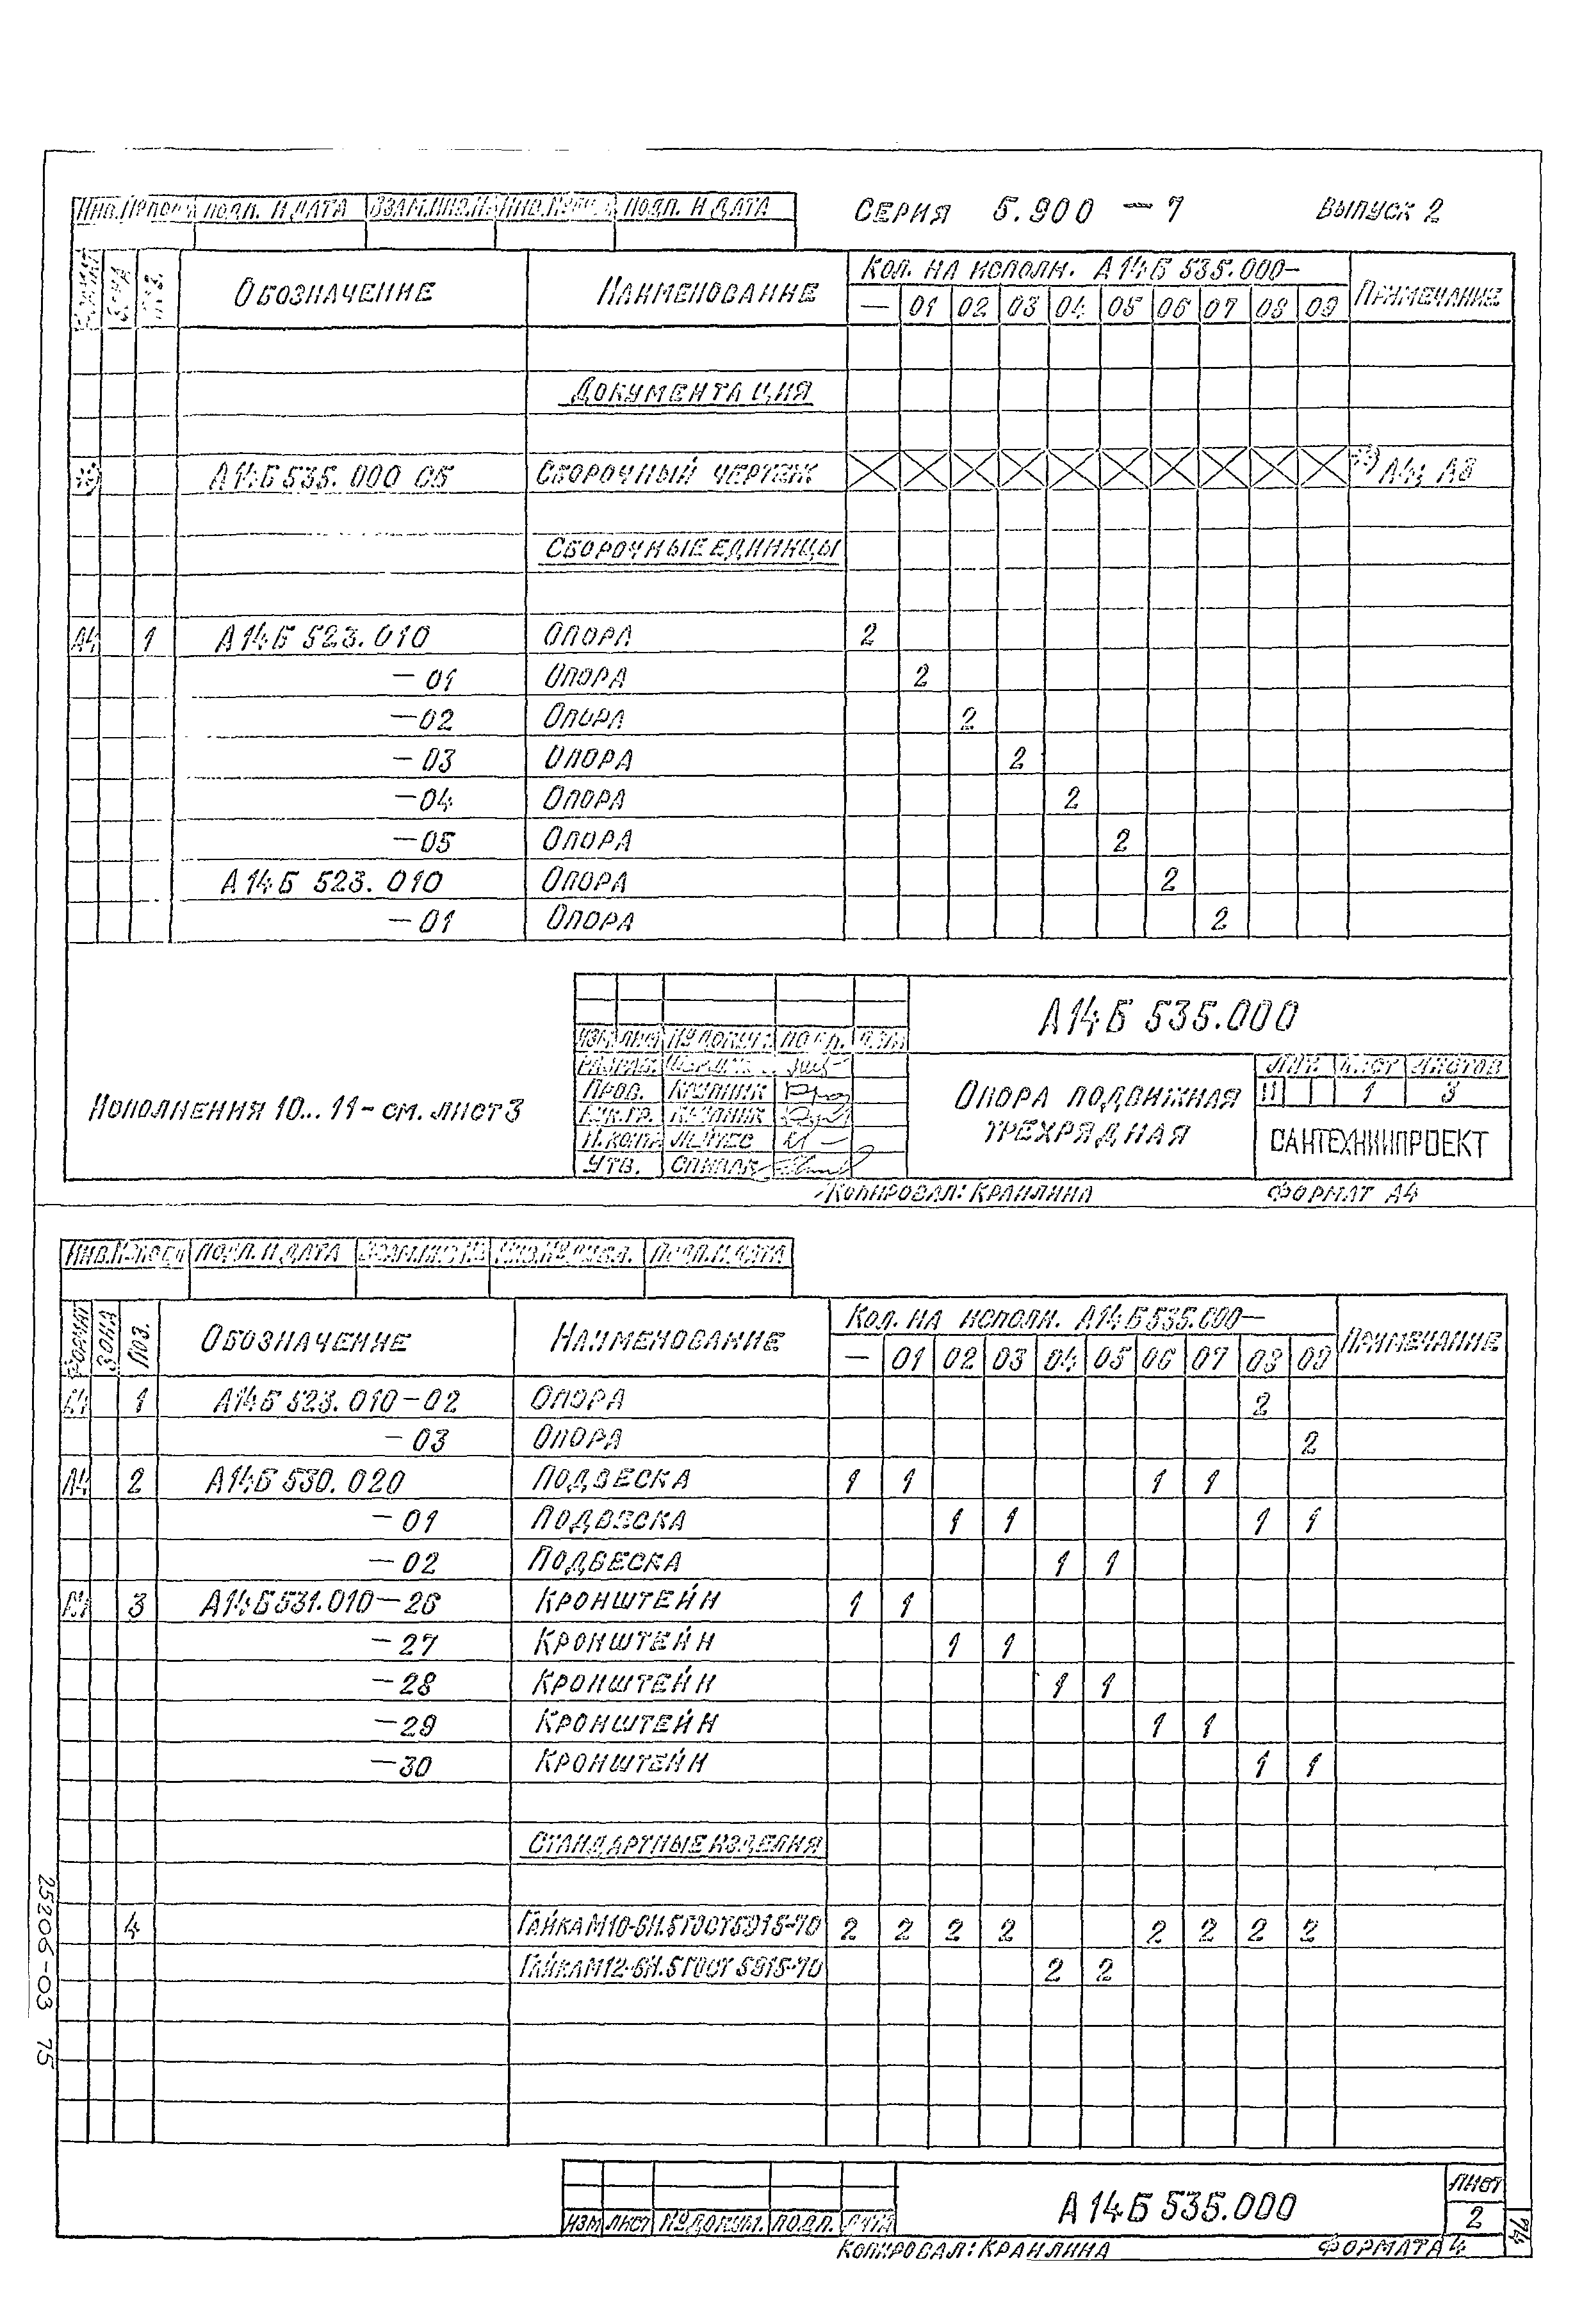 Инв.№подл. Подп. и дата Взам.инв.№ Подп. и дата
Серия 5.900 — 7 Выпуск 2
Формат Зона Поз. Обозначение Наименование Кол. на исполн. А14Б 535.000— Примечание
— 01 02 03 04 05 06 07 08 09
Документация
*) А14Б 535.000 СБ Сборочный чертеж *) А4; А3
Сборочные единицы
А4 1 А14Б 523.010 Опора 2
— 01 Опора 2
— 02 Опора 2
— 03 Опора 2
— 04 Опора 2
— 05 Опора 2
А14Б 523.010 Опора 2
— 01 Опора 2
Исполнения 10... 11 - см. лист 3
Изм Лист № докум. Подп. Дата
Разраб.
Пров. Крупник
Рук.гр. Крупник
Н.конт.
Утв. Спивак
А14Б 535.000
Опора подвижная
трехрядная
Лит. Лист Листов
И 1 3
САНТЕХНИИПРОЕКТ
Копировал: Краилина Формат А4
Инв.№подл Подп. и дата Взам.инв.№ Инв.№дубл. Подп. и дата
Формат Зона Поз. Обозначение Наименование Кол. на исполн. А14Б 535.000— Примечание
— 01 02 03 04 05 06 07 08 09
А4 1 А14Б 523.010-02 Опора 2
— 03 Опора 2
А4 2 А14Б 530.020 Подвеска 1 1 1 1
— 01 Подвеска 1 1 1 1
— 02 Подвеска 1 1
А4 3 А14Б 531.010—26 Кронштейн 1 1
— 27 Кронштейн 1 1
— 28 Кронштейн 1 1
— 29 Кронштейн 1 1
— 30 Кронштейн 1 1
Стандартные изделия
4 Гайка М10-6Н.5 ГОСТ 5915-70 2 2 2 2 2 2 2 2
Гайка М12-6Н.5 ГОСТ 5915-70 2 2
25206-03 75
Изм Лист № докум. Подп. Дата
А14Б 535.000
Лист
2
74
Копировал: Краилина Формат А4